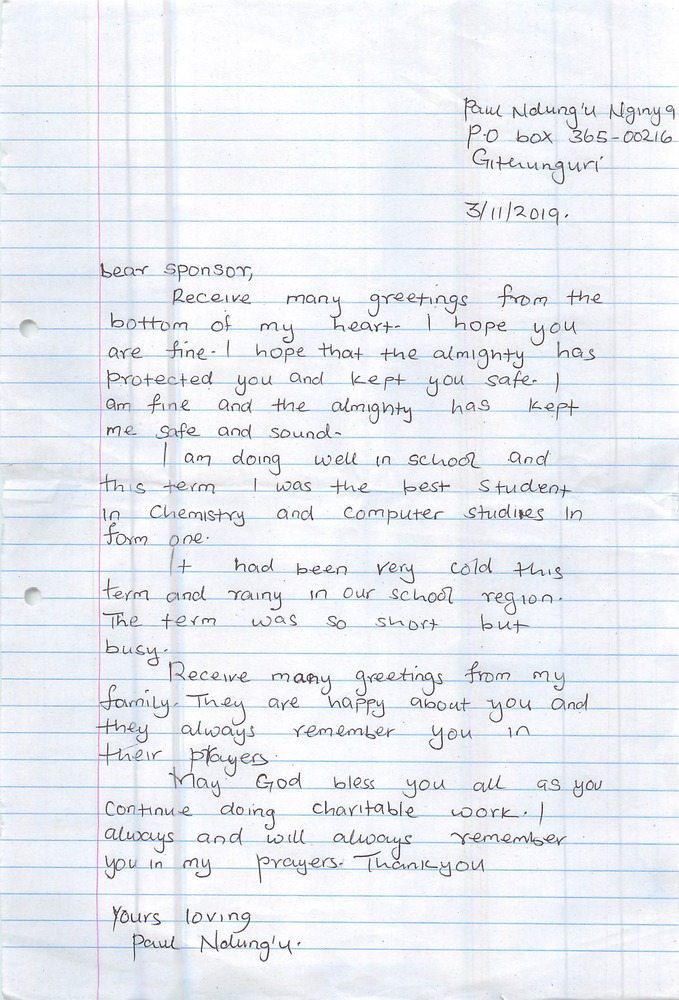 Paul Ndung'u Nginya
P.O box 365-00216
Githunguri
3/11/2019.
Dear sponsor,
Receive many greetings from the
bottom of my heart. I hope you
are fine. I hope that the almighty has
protected you and kept you safe. I
am fine and the almighty has kept
me safe and sound.
I am doing well in school and
this term I was the best student
in Chemistry and Computer studies in
form one.
It had been very cold this
term and rainy in our school region.
The term was so short but
busy.
Receive many greetings from my
family. They are happy about you and
they always remember you in
their prayers.
May God bless you all as you
continue doing charitable work. I
always and will always remember
you in my prayers. Thankyou
Yours loving
Paul Ndung'u.